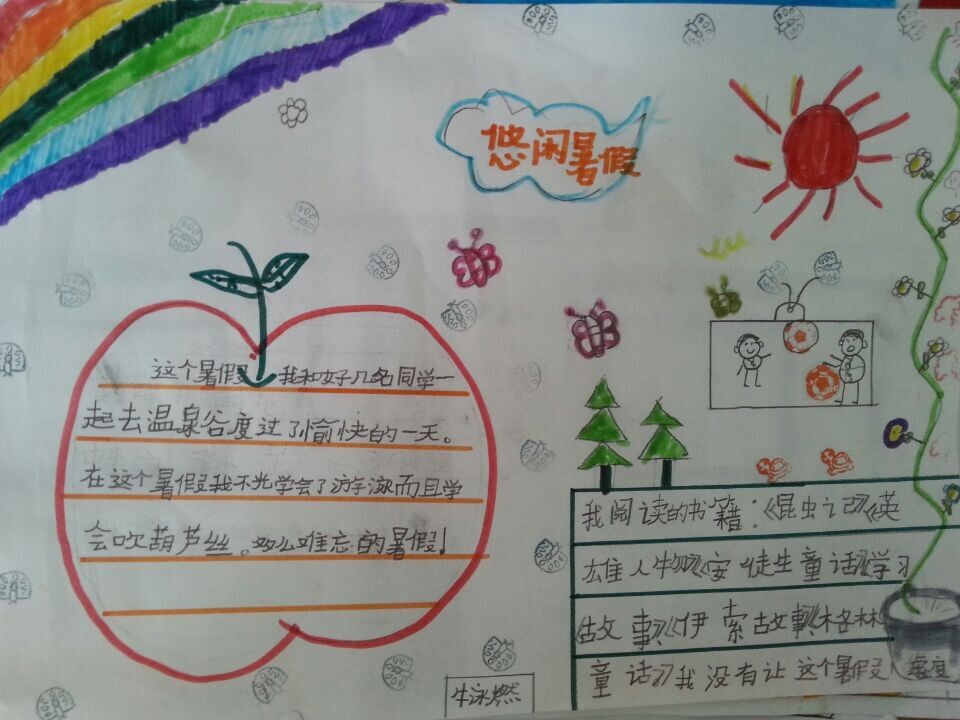 悠闲暑假
这个暑假 我和好几名同学一
起去温泉谷度过了愉快的一天。
在这个暑假我不光学会了游泳而且学
会吹葫芦丝。多么难忘的暑假!
我阅读的书籍:《昆虫记》《英
雄人物》《安徒生童话》《学习
故事》《伊索故事》《格林
童话》我没有让这个暑假虚度
牛泳燃